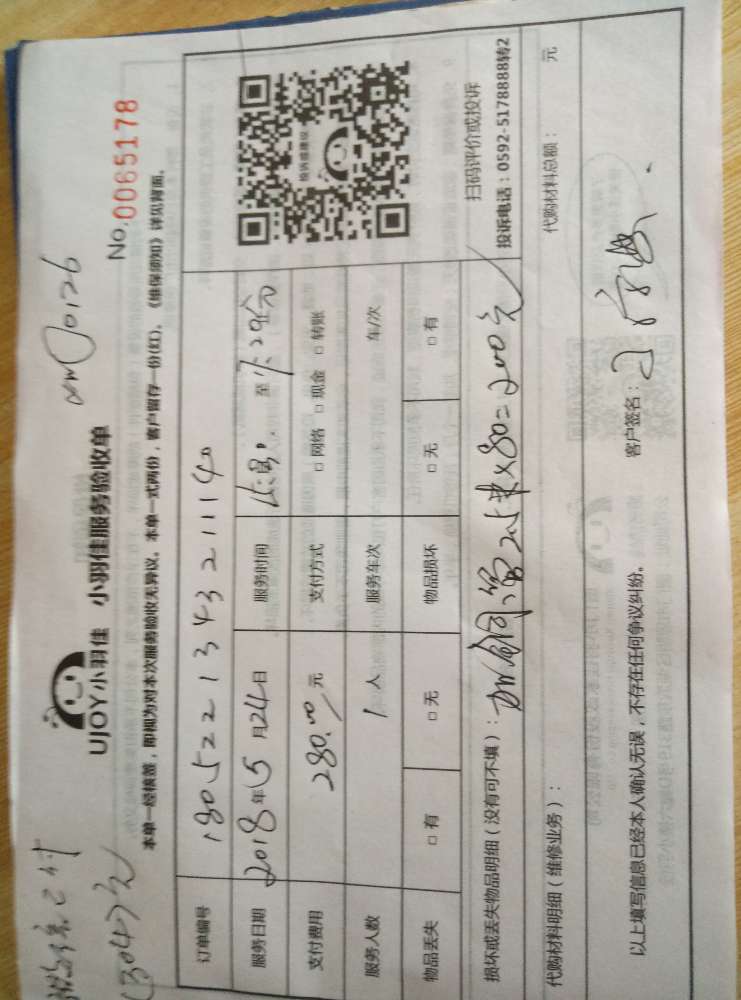 No.0065178
UJOY小羽佳 小羽佳服务验收单
本单一经核签，即视为对本次服务验收无异议。本单一式两份，客户留存一份(红)。《维保须知》详见背面。
订单编号 180522134321114
服务日期 2018年5月24日 服务时间 至
支付费用 280.00元 支付方式 □网络 □现金 □转账
服务人数 1人 服务车次 车/次
物品丢失 □有 □无 物品损坏 □无 □有
投诉或建议
扫码评价或投诉
投诉电话：0592-5178888转2
损坏或丢失物品明细（没有可不填）： 铜管2.5米×80=200元
代购材料明细（维修业务）： 代购材料总额： 元
以上填写信息已经本人确认无误，不存在任何争议纠纷。 客户签名：